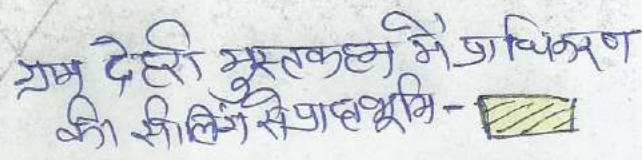 ग्राम देहरी मुस्तकहम में प्राधिकरण
की सीलिंग से प्राप्त भूमि -